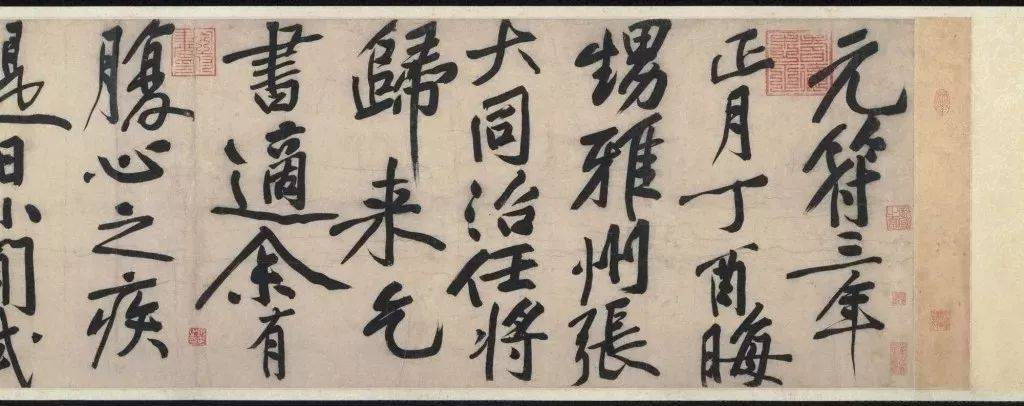 元符三年
正月丁酉晦
甥雅州張
大同治任將
歸來乞
書適余有
腹心之疾
是日小閒試